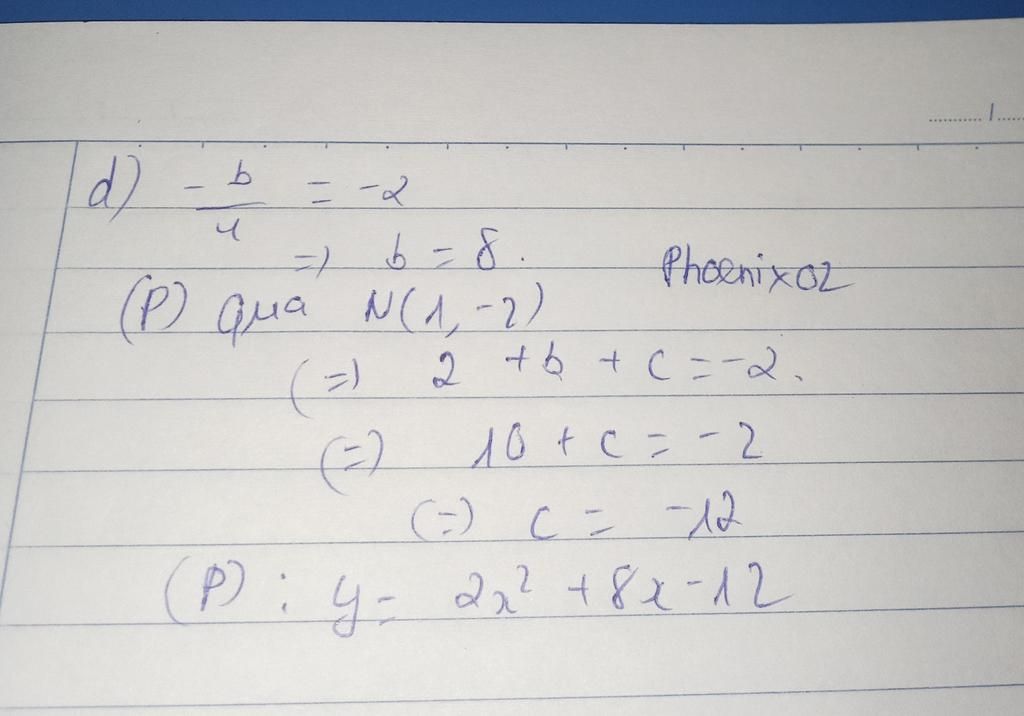 d) -b/4 = -2
=) b = 8.
Phoenix02
(P) qua N(1, -2)
(=) 2 + b + c = -2.
(=) 10 + c = -2
(=) c = -12
(P) : y = 2x² + 8x - 12